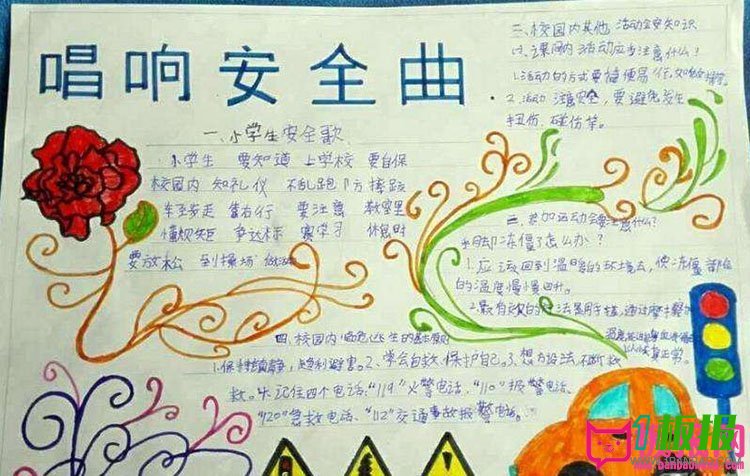 唱响安全曲
一、小学生安全歌
小学生 要知道 上学校 要自保
校园内 知礼仪 不乱跑 防摔跤
靠右行 要注意 教室里
懂规矩 争达标 寓学习 休息时
要放松 到操场 做
二、校园内其他活动安全知识
课间活动应当注意什么?
1.活动的方式要简便易行,如做操等。
2.活动 注意安全,要避免发生
扭伤、碰伤等。
三、参加运动会要注意什么?
手脚冻僵了怎么办?
1.应该回到温暖的环境去,使冻僵部位
的温度慢慢回升。
2.最有效的办法是用手搓,通过摩擦
四、校园内 的基本原则
1.保持镇静,趋利避害。2、学会自救,保护自己。3、想方设法不断求
救。4.记住四个电话:"119"火警电话、"110"报警电话、
"120"急救电话、"112"交通事故报警电话。
板报网